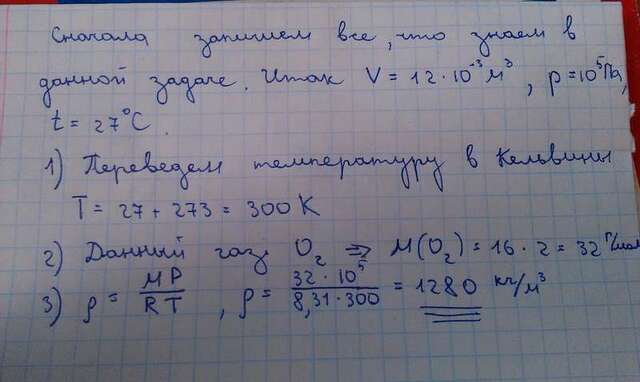 Сначала запишем все, что знаем в
данной задаче. Итак V = 12·10⁻³ м³, p = 10⁵ Па,
t = 27°C.
1) Переведем температуру в Кельвины
T = 27 + 273 = 300 K
2) Данный газ O₂ ⇒ M(O₂) = 16 · 2 = 32 г/моль
3) ρ = MP/RT, ρ = 32·10⁵/8,31·300 = 1280 кг/м³